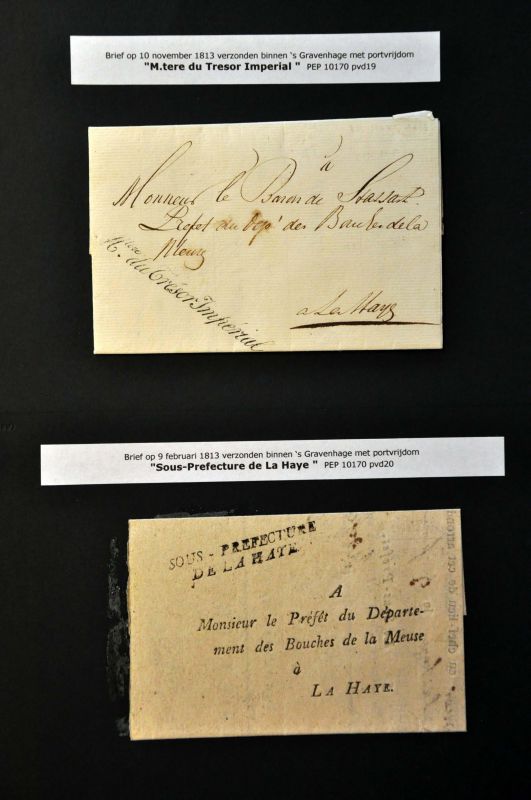 Brief op 10 november 1813 verzonden binnen 's Gravenhage met portvrijdom
"M.tere du Tresor Imperial " PEP 10170 pvd19
A
Monsieur le Baron de Stassart
Préfet du Dépt des Bouches de la
Meuse
M.tere du Trésor Impérial
a La Haye
Brief op 9 februari 1813 verzonden binnen 's Gravenhage met portvrijdom
"Sous-Prefecture de La Haye " PEP 10170 pvd20
SOUS - PREFECTURE
DE LA HAYE
A
Monsieur le Préfêt du Départe-
ment des Bouches de la Meuse
à
LA HAYE.